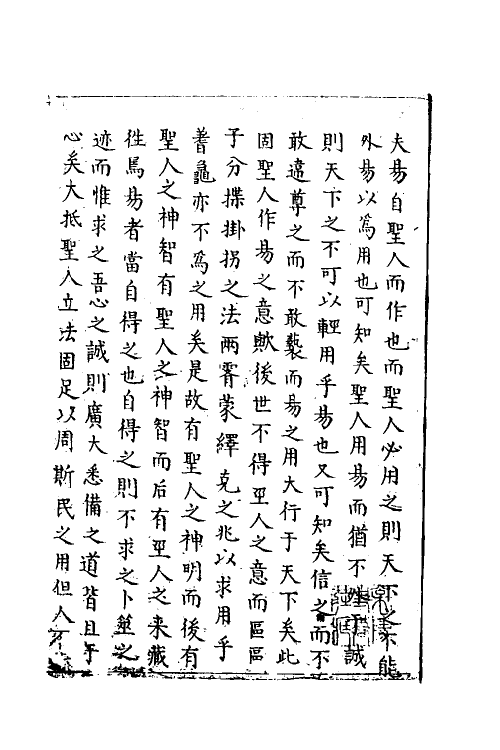 夫易自聖人而作也而聖人必用之則天下之不能
外易以為用也可知矣聖人用易而猶不誠
則天下之不可以輕用乎易也又可知矣信之而不
敢違尊之而不敢褻而易之用大行于天下矣此
固聖人作易之意歟後世不得聖人之意而區區
于分揲掛扐之法兩霽蒙繹克之兆以求用乎
蓍龜亦不為之用矣是故有聖人之神明而後有
聖人之神智有聖人之神智而后有聖人之来藏
徃焉易者當自得之也自得之則不求之卜筮之
迹而惟求之吾心之誠則廣大悉備之道皆且于
心矣大抵聖人立法固足以周斯民之用但人